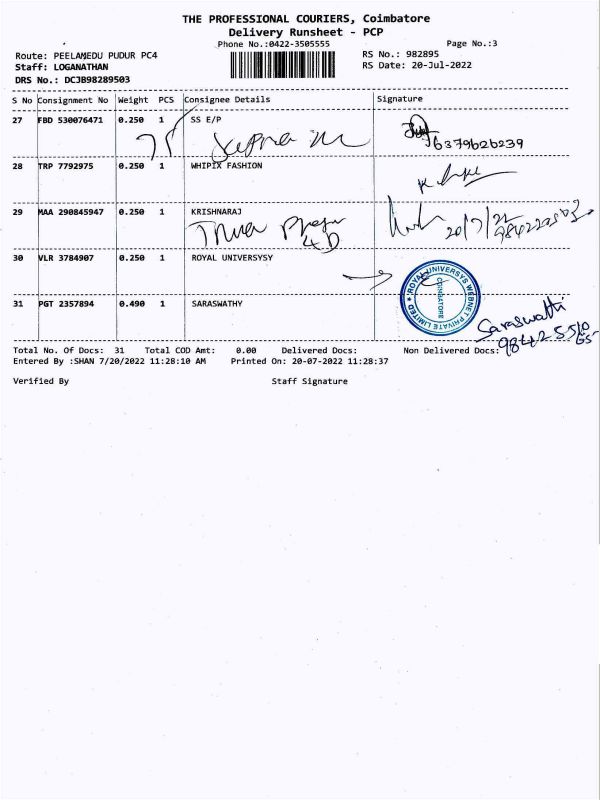 THE PROFESSIONAL COURIERS, Coimbatore
Delivery Runsheet - PCP
Phone No.:0422-3505555
Page No.:3
Route: PEELAMEDU PUDUR PC4
RS No.: 982895
Staff: LOGANATHAN
RS Date: 20-Jul-2022
DRS No.: DCJB98289503
S No Consignment No Weight PCS Consignee Details Signature
27 FBD 530076471 0.250 1 SS E/P
6379626239
28 TRP 7792975 0.250 1 WHIPIX FASHION
29 MAA 290845947 0.250 1 KRISHNARAJ
20/7/22
30 VLR 3784907 0.250 1 ROYAL UNIVERSYSY
ROYAL UNIVERSYS WEBNET PRIVATE LIMITED
COIMBATORE
31 PGT 2357894 0.490 1 SARASWATHY
Saraswathi
Total No. Of Docs: 31 Total COD Amt: 0.00 Delivered Docs: Non Delivered Docs:
Entered By :SHAN 7/20/2022 11:28:10 AM Printed On: 20-07-2022 11:28:37
Verified By Staff Signature